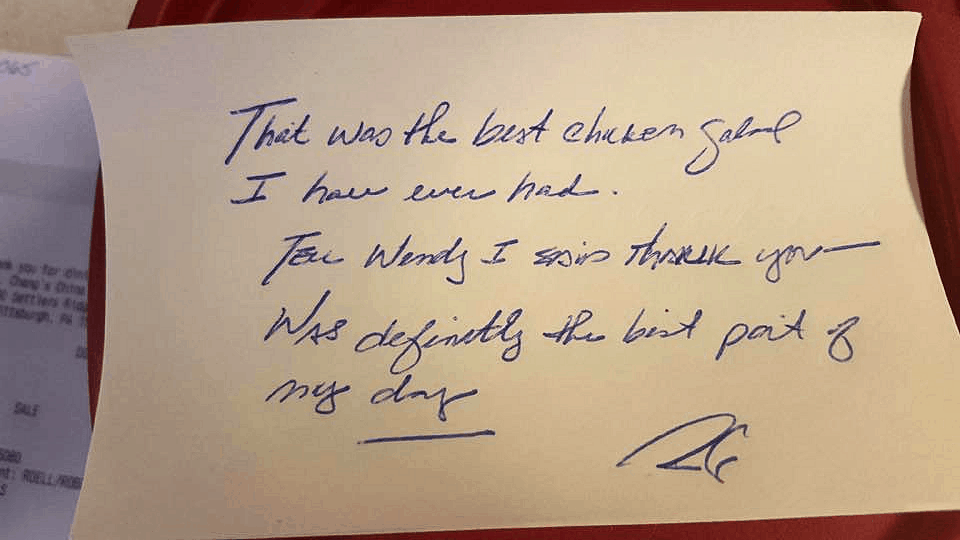 065
That was the best chicken salad
I have ever had.
Tell Wendy I said thank you—
Was definetly the best part of
my day
you for
Chang's China
Settlers
Pittsburgh, PA
SALE
ROELL/